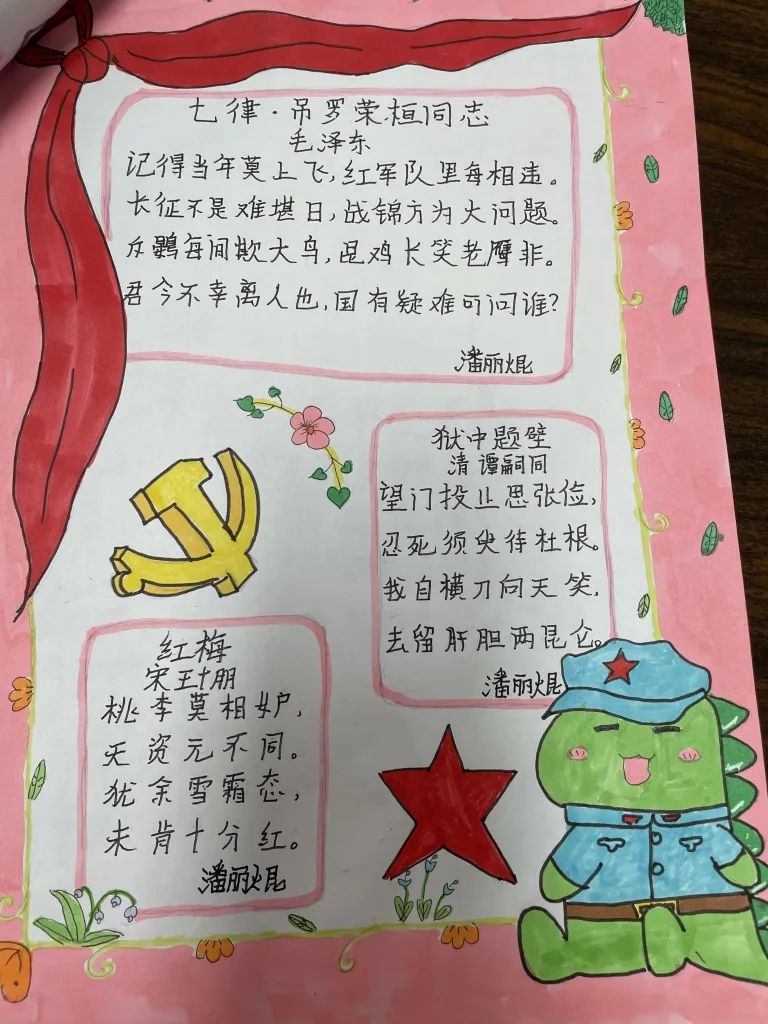 七律·吊罗荣桓同志
毛泽东
记得当年莫上飞,红军队里每相违。
长征不是难堪日,战锦方为大问题。
斥鷃每间欺大鸟,昆鸡长笑老鹰非。
君今不幸离人也,国有疑难可问谁?
潘丽焜
狱中题壁
清 谭嗣同
望门投止思张俭,
忍死须臾待杜根。
我自横刀向天笑,
去留肝胆两昆仑。
潘丽焜
红梅
宋王十朋
桃李莫相妒,
天资元不同。
犹余雪霜态,
未肯十分红。
潘丽焜